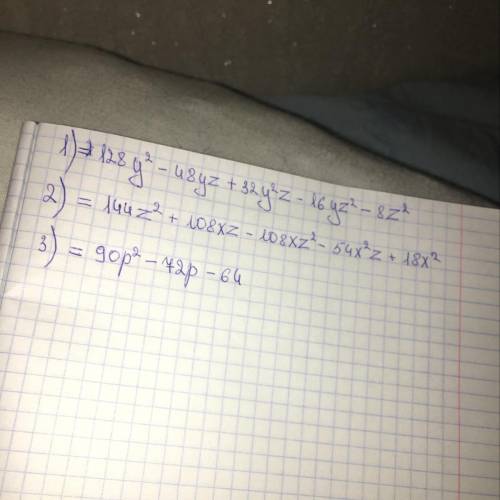 1) = 128y² - 48yz + 32y²z - 16yz² - 8z²
2) = 144z² + 108xz - 108xz² - 54x²z + 18x²
3) = 90p² - 72p - 64